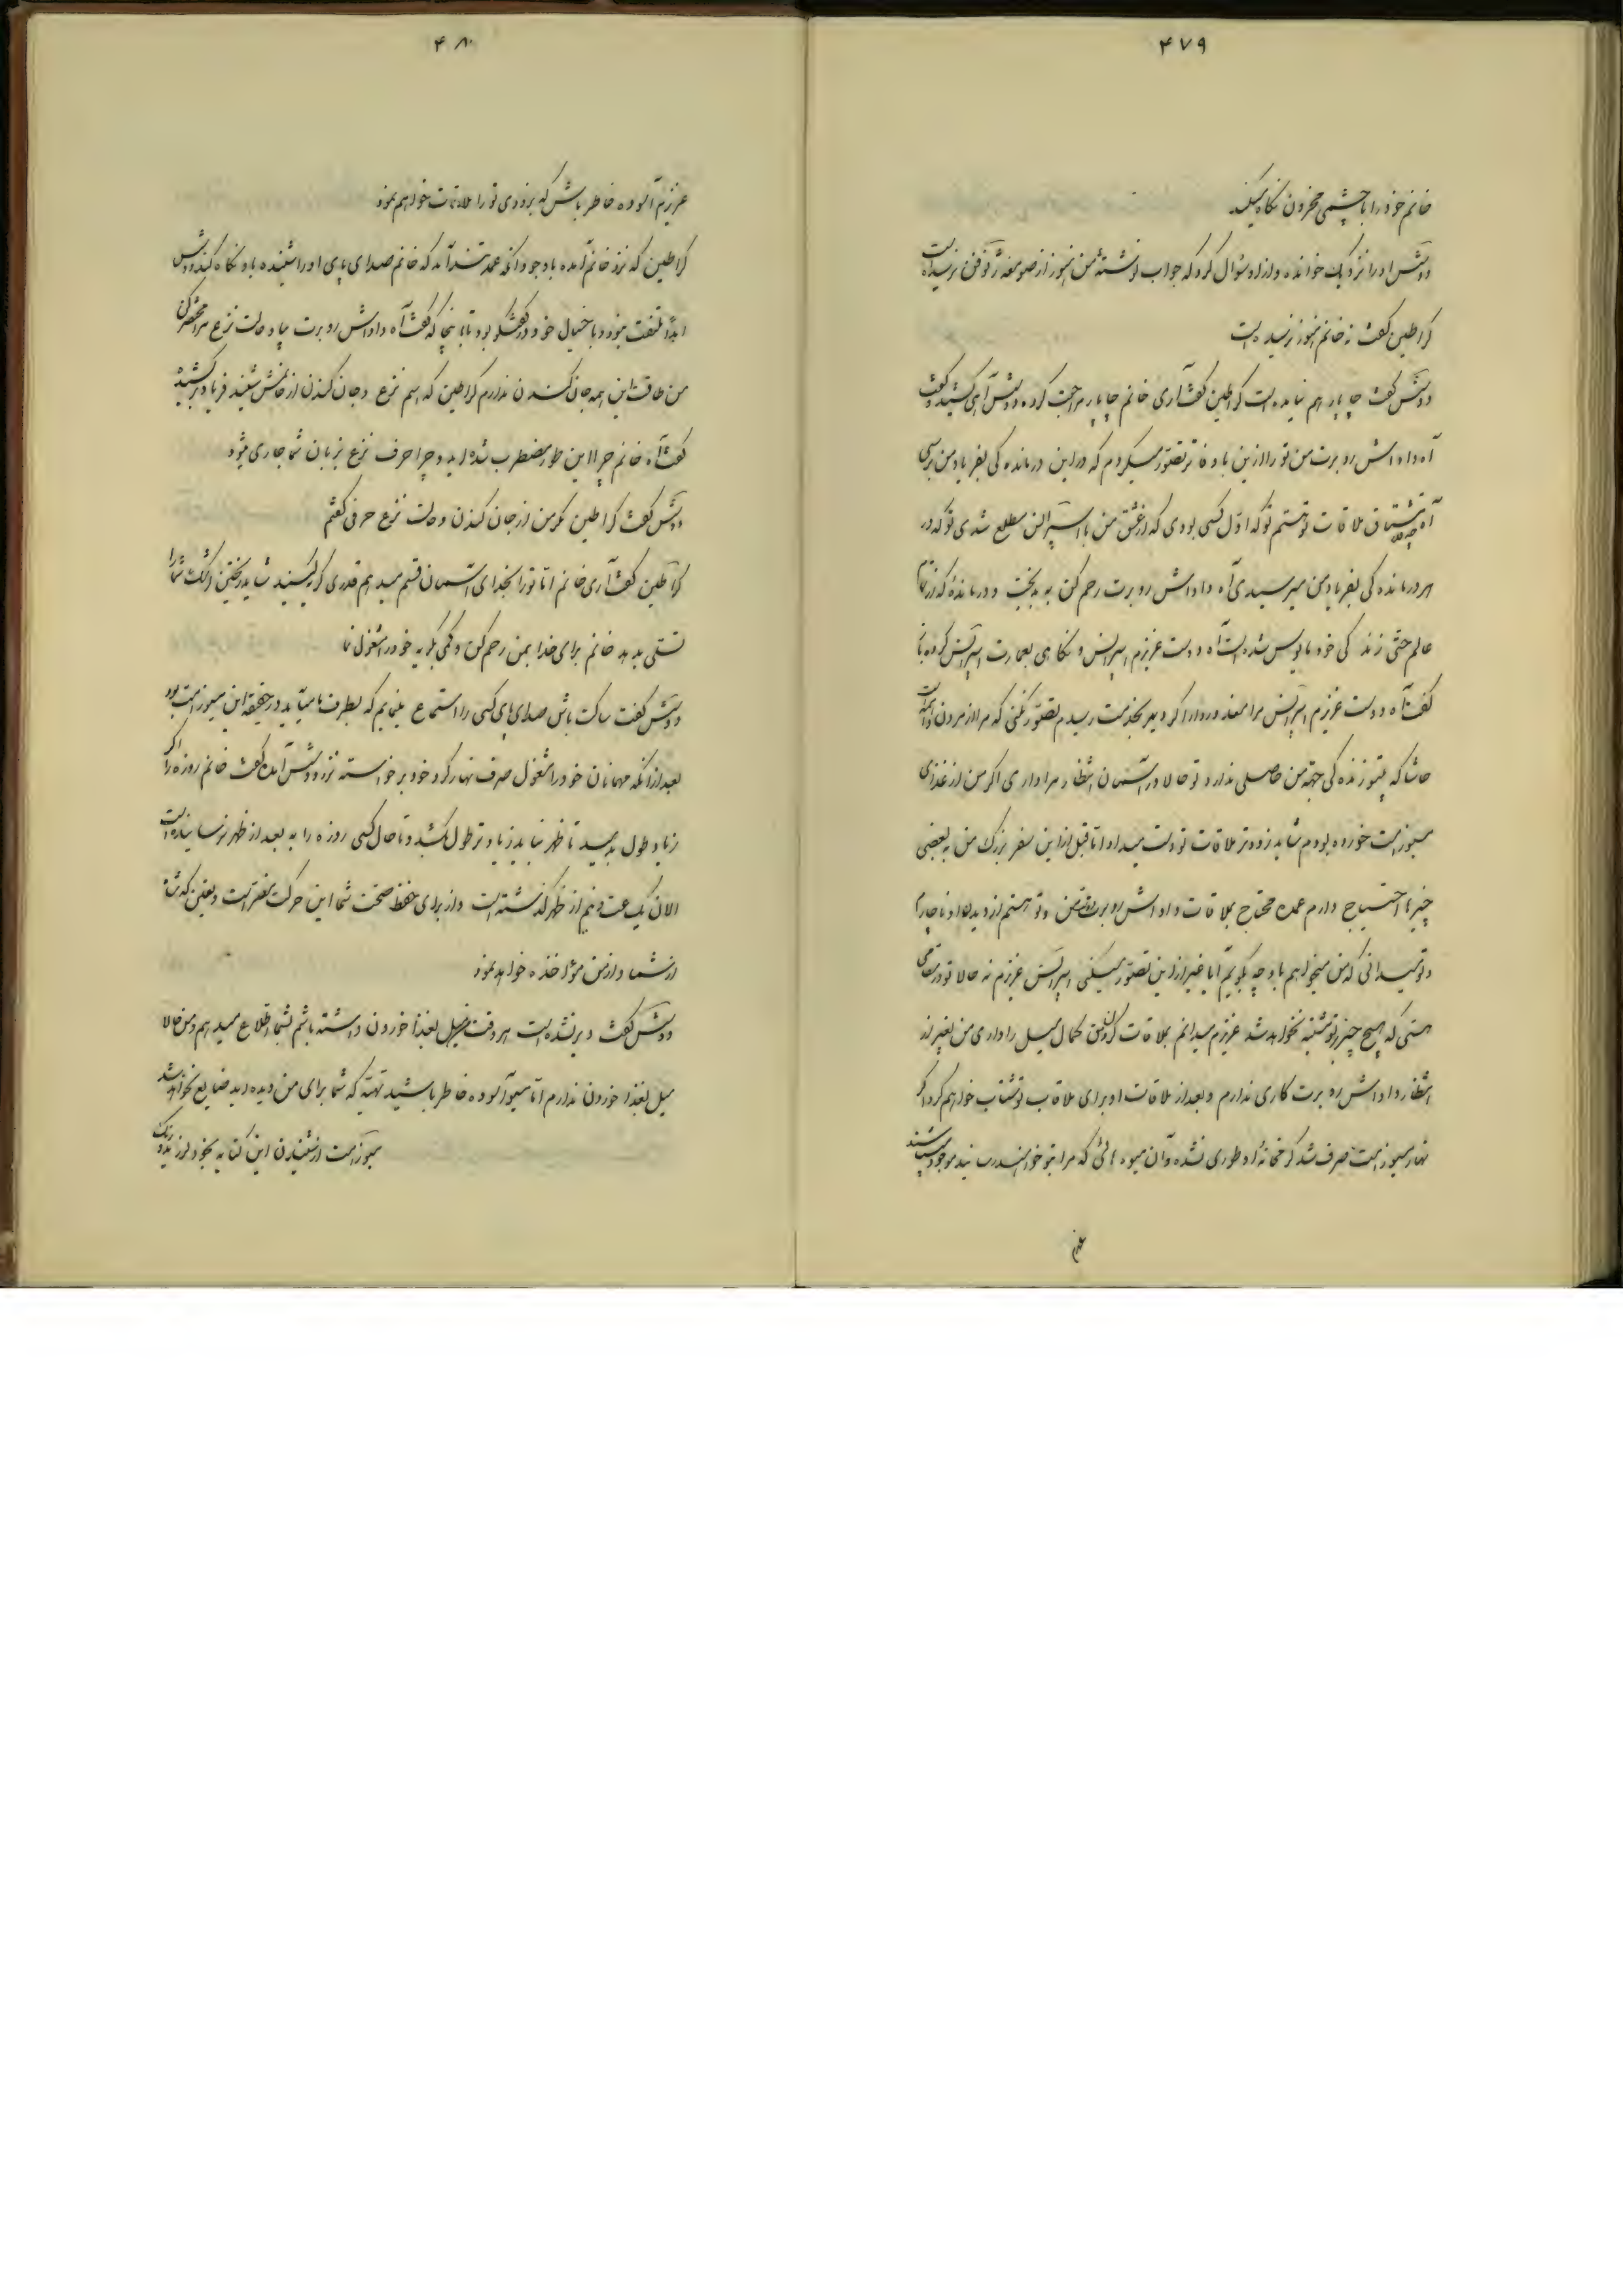 ۴۷۹
خانم خود را با چشمی محزون نگاه میکند
دوشس او را نزدیک خوانده و از او سئوال کرد که جواب نوشتهٔ من هنوز از صومعه نرسیده است
کراطین گفت نه خانم هنوز نرسیده است
دوشس گفت چاپار هم نیامده است کراطین گفت آری خانم چاپار مراجعت کرده دوشس آهی کشید و گفت
آه داداش روبرت من تو را ازین باوفاتر تصور میکردم که در این درماندگی بفریاد من برسی
آه چه مشتاق ملاقات تو هستم تو که اول کسی بودی که از عشق من با مطلع شدی تو که در
هر درماندگی بفریاد من میرسیدی آه داداش روبرت رحم کن به بدبخت و درماندهٔ که از تمام
عالم حتی زندگی خود مأیوس شده است آه دوست عزیزم و نگاهی بعمارت کرده با
گفت آه دوست عزیزم مرا معذور دار اگر دیر بخدمت رسیدم تصور نکنی که مرا از مردن
حاشا که بیتو زندگی جهة من حاصلی ندارد تو حالا در آسمان انتظار مرا داری اگر من از غذای
خورده بودم شاید زودتر ملاقات تو دست میداد اما قبل از این سفر بزرگ من به بعضی
چیزها احتیاج دارم عمده محتاج بملاقات داداش روبرت هستم از دیدن او ناچارم
و تو میدانی که من میخواهم با او چه بگویم آیا غیر از این تصور میکنی عزیزم نه حالا تو در مقامی
هستی که هیچ چیز بر تو مشتبه نخواهد شد عزیزم میدانم بملاقات کردن من کمال میل را داری من بغیر از
انتظار داداش روبرت کاری ندارم و بعد از ملاقات او برای ملاقات تو شتاب خواهم کرد اگر
نهار صرف شد که خانهٔ او طوری نشده و آن میوه هائی که مرا بتو خواهند رسانید موجود هستند
عزیزم
۴۸۰
عزیزم آسوده خاطر باش که بزودی تو را ملاقات خواهم نمود
کراطین که نزد خانم آمده با وجود آنکه عمداً تند آمد که خانم صدای پای او را شنیده باو نگاه کند دوشس
ابداً ملتفت نبود و با خیال خود در گفتگو بود تا باینجا که گفت آه داداش روبرت بیا و حالت نزع مرا مختصر کن
من طاقت این همه جان کندن ندارم کراطین که اسم نزع و جان کندن از خانمش شنید فریاد برکشید
گفت آه خانم چرا این طور مضطرب شده اید و چرا حرف نزع بزبان شما جاری میشود
دوشس گفت کراطین مگر من از جان کندن و حالت نزع حرفی گفتم
کراطین گفت آری خانم اما تو را بخدای آسمان قسم میدهم قدری گریه کنید شاید ریختن اشک شما را
تسلی بدهد خانم برای خدا بمن رحم کن و کمی بگریه خود را مشغول نما
دوشس گفت ساکت باش صدای پای کسی را استماع مینمایم که بطرف ما میآید در حقیقة این بود
بعد از آنکه مهمانان خود را مشغول صرف نهار کرد خود برخواسته نزد دوشس آمده گفت خانم روزه را اگر
زیاد طول بدهید تا ظهر نباید زیادتر طول بکشد و تا حال کسی روزه را به بعد از ظهر نرسانیده است
الان یک ساعت و نیم از ظهر گذشته است و از برای حفظ صحت شما این حرکت مضر است و یقین که
از شما و از من مؤاخذه خواهد نمود
دوشس گفت دیر نشده است هر وقت میل بغذا خوردن داشته باشم بشما اطلاع میدهم و من حالا
میل بغذا خوردن ندارم اما آسوده خاطر باشید تهیهٔ که شما برای من دیده اید ضایع نخواهد شد
از شنیدن این کنایه بخود لرزید و رنگ